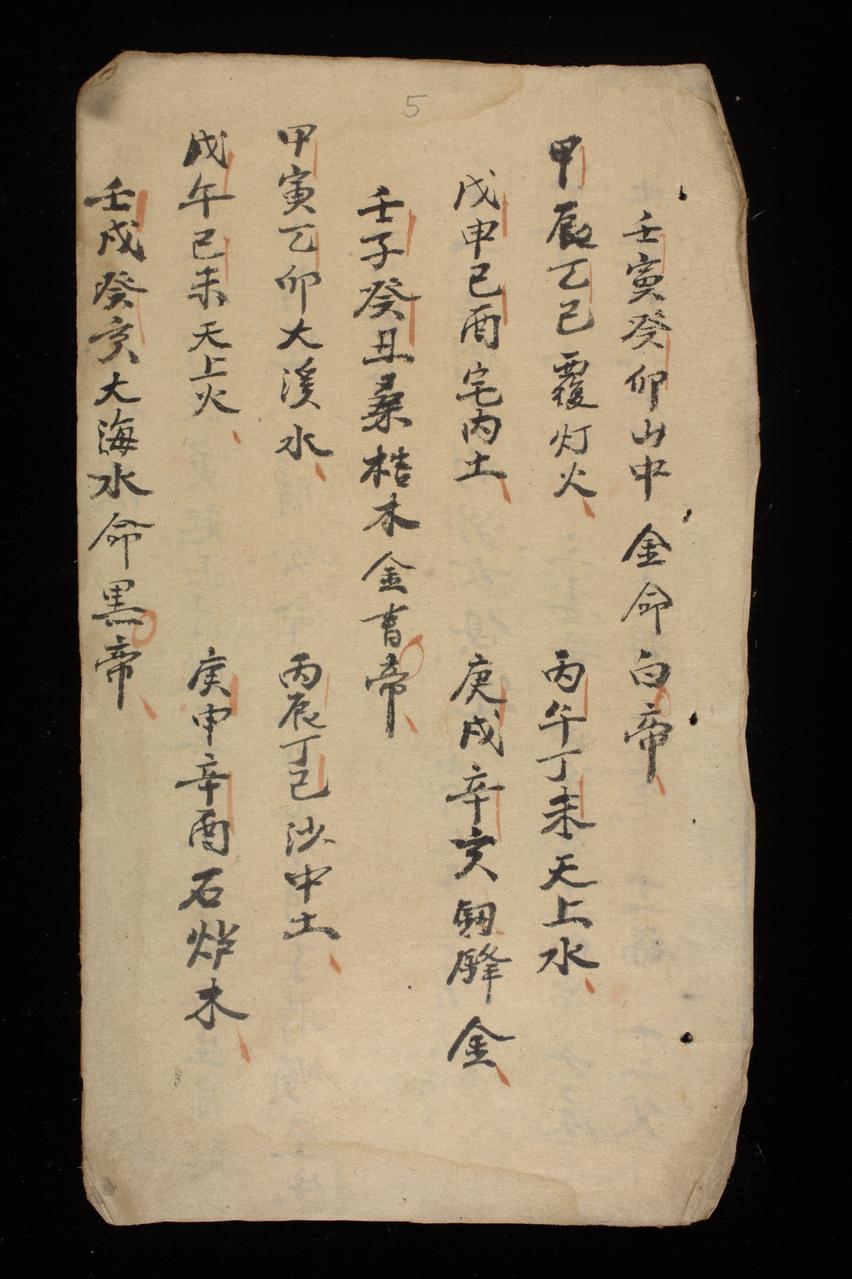 5
壬寅癸卯山中金命白帝
甲辰乙已覆灯火 丙午丁未天上水
戊申已酉宅内土 庚戌辛亥釼鋒金
壬子癸丑桑梏木金青帝
甲寅乙卯大溪水 丙辰丁已沙中土
戊午已未天上火 庚申辛酉石木
壬戌癸亥大海水命黑帝